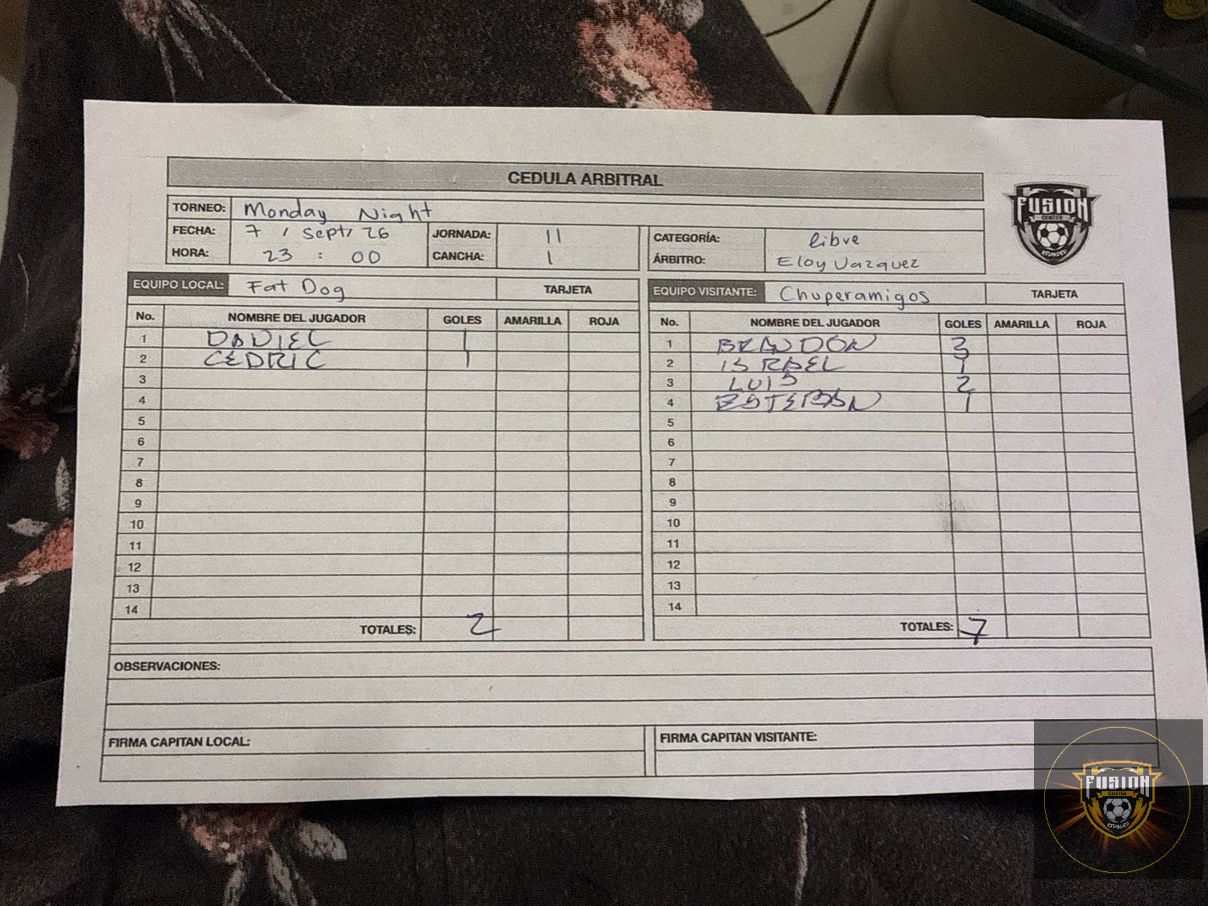 CEDULA ARBITRAL
TORNEO: Monday Night
FECHA: 7 / Sept / 26 JORNADA: 11 CATEGORÍA: libre
HORA: 23 : 00 CANCHA: 1 ÁRBITRO: Eloy Vazquez
FUSION
CENTER
EQUIPO LOCAL: Fat Dog TARJETA EQUIPO VISITANTE: Chuperamigos TARJETA
No. NOMBRE DEL JUGADOR GOLES AMARILLA ROJA No. NOMBRE DEL JUGADOR GOLES AMARILLA ROJA
1 DANIEL 1 1 BRANDON 3
2 CEDRIC 1 2 ISRAEL 1
3 3 LUIS 2
4 4 ESTEBAN 1
5 5
6 6
7 7
8 8
9 9
10 10
11 11
12 12
13 13
14 14
TOTALES: 2 TOTALES: 7
OBSERVACIONES:
FIRMA CAPITAN LOCAL: FIRMA CAPITAN VISITANTE:
FUSION
CENTER